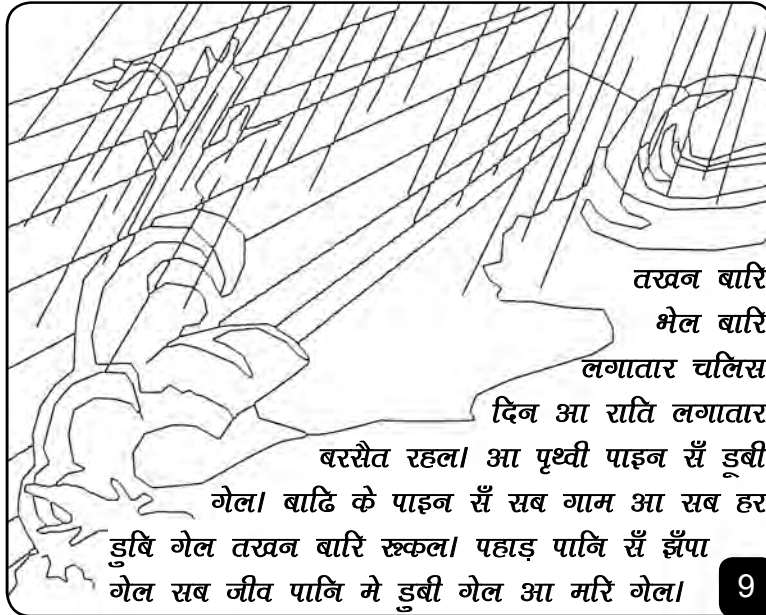 तखन बारि
भेल बारि
लगातार चलिस
दिन आ राति लगातार
बरसैत रहल। आ पृथ्वी पाइन सँ डूबी
गेल। बाढि के पाइन सँ सब गाम आ सब हर
डुबि गेल तखन बारि रुकल। पहाड़ पानि सँ झँपा
गेल सब जीव पानि मे डुबी गेल आ मरि गेल।
9